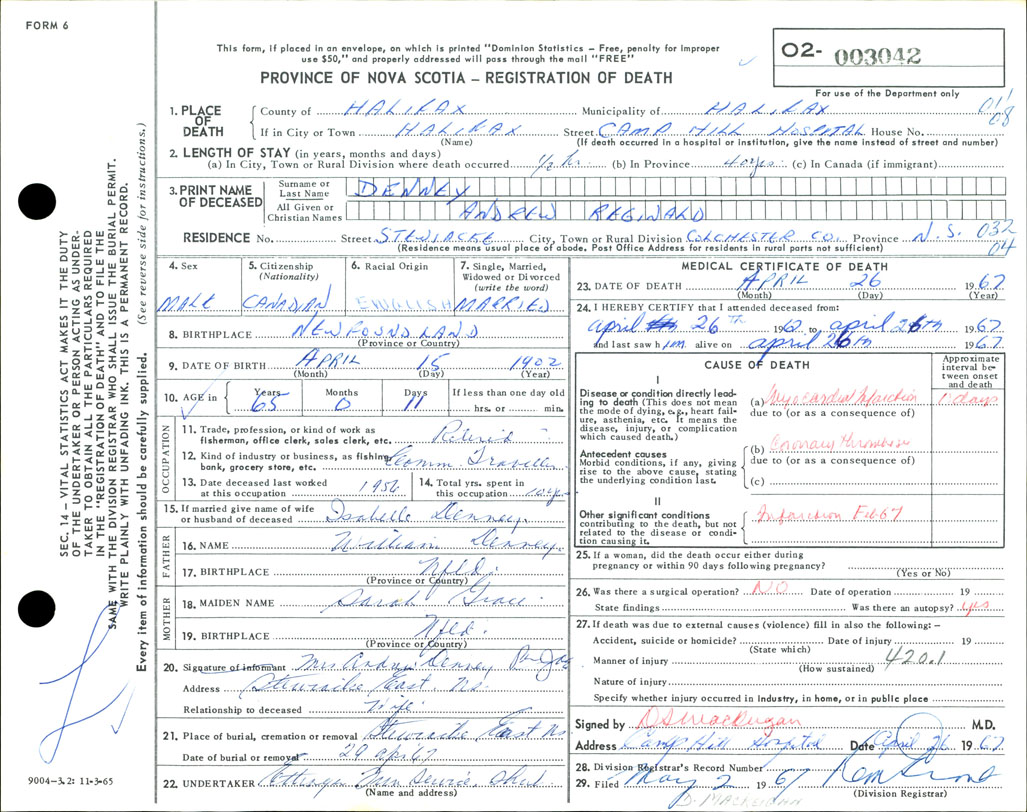 FORM 6
This form, if placed in an envelope, on which is printed "Dominion Statistics - Free, penalty for improper
use $50," and properly addressed will pass through the mail "FREE"
PROVINCE OF NOVA SCOTIA – REGISTRATION OF DEATH
02- 003042
For use of the Department only
1. PLACE OF DEATH
County of HALIFAX Municipality of HALIFAX 011
If in City or Town HALIFAX Street CAMP HILL HOSPITAL House No. 08
(Name) (If death occurred in a hospital or institution, give the name instead of street and number)
2. LENGTH OF STAY (in years, months and days)
(a) In City, Town or Rural Division where death occurred 1/2 hr. (b) In Province 40 yrs (c) In Canada (if immigrant)
3. PRINT NAME OF DECEASED
Surname or Last Name DENNEY
All Given or Christian Names ANDREW REGINALD
RESIDENCE No. Street STEWIACKE City, Town or Rural Division COLCHESTER CO. Province N.S. 032
(Residence means usual place of abode. Post Office Address for residents in rural parts not sufficient) 04
4. Sex MALE
5. Citizenship (Nationality) CANADIAN
6. Racial Origin ENGLISH
7. Single, Married, Widowed or Divorced (write the word) MARRIED
8. BIRTHPLACE NEWFOUNDLAND
(Province or Country)
9. DATE OF BIRTH APRIL 15 1902
(Month) (Day) (Year)
10. AGE in Years 65 Months 0 Days 11 If less than one day old hrs. or min.
OCCUPATION
11. Trade, profession, or kind of work as fisherman, office clerk, sales clerk, etc. Retired
12. Kind of industry or business, as fishing, bank, grocery store, etc. Comm. Traveller
13. Date deceased last worked at this occupation 1956
14. Total yrs. spent in this occupation 10 yrs
15. If married give name of wife or husband of deceased Isabelle Denney
FATHER
16. NAME William Denney
17. BIRTHPLACE Nfld.
(Province or Country)
MOTHER
18. MAIDEN NAME Sarah Grace
19. BIRTHPLACE Nfld.
(Province or Country)
20. Signature of informant Mrs Andrew Denney
Address Stewiacke East. NS.
Relationship to deceased Wife
21. Place of burial, cremation or removal Stewiacke East NS
Date of burial or removal 29 apr 67
22. UNDERTAKER
(Name and address)
MEDICAL CERTIFICATE OF DEATH
23. DATE OF DEATH APRIL 26 1967
(Month) (Day) (Year)
24. I HEREBY CERTIFY that I attended deceased from:
april 26th 1967 to april 26th 1967
and last saw him alive on april 26th 1967
CAUSE OF DEATH
Approximate interval between onset and death
I
Disease or condition directly leading to death (This does not mean the mode of dying, e.g., heart failure, asthenia, etc. It means the disease, injury, or complication which caused death.)
(a) Myocardial Infarction days
due to (or as a consequence of)
Antecedent causes
Morbid conditions, if any, giving rise to the above cause, stating the underlying condition last.
(b) Coronary thrombosis
due to (or as a consequence of)
(c)
II
Other significant conditions contributing to the death, but not related to the disease or condition causing it.
Infarction Feb 67
25. If a woman, did the death occur either during
pregnancy or within 90 days following pregnancy?
(Yes or No)
26. Was there a surgical operation? NO Date of operation 19
State findings Was there an autopsy? yes
27. If death was due to external causes (violence) fill in also the following: –
Accident, suicide or homicide? Date of injury 19
(State which)
Manner of injury 420.1
(How sustained)
Nature of injury
Specify whether injury occurred in industry, in home, or in public place
Signed by M.D.
Address Camp Hill Hospital Date April 26 1967
28. Division Registrar's Record Number
29. Filed May 2 1967
(Division Registrar)
SEC. 14 – VITAL STATISTICS ACT MAKES IT THE DUTY
OF THE UNDERTAKER OR PERSON ACTING AS UNDER-
TAKER TO OBTAIN ALL THE PARTICULARS REQUIRED
IN THE "REGISTRATION OF DEATH" AND TO FILE THE
SAME WITH THE DIVISION REGISTRAR WHO SHALL ISSUE THE BURIAL PERMIT.
WRITE PLAINLY WITH UNFADING INK. THIS IS A PERMANENT RECORD.
Every item of information should be carefully supplied. (See reverse side for instructions.)
9004-3.2: 11-3-65